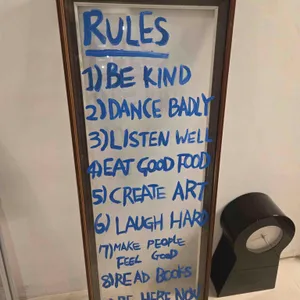 RULES
1) BE KIND
2) DANCE BADLY
3) LISTEN WELL
4) EAT GOOD FOOD
5) CREATE ART
6) LAUGH HARD
7) MAKE PEOPLE
FEEL GOOD
8) READ BOOKS
BE HERE NOW